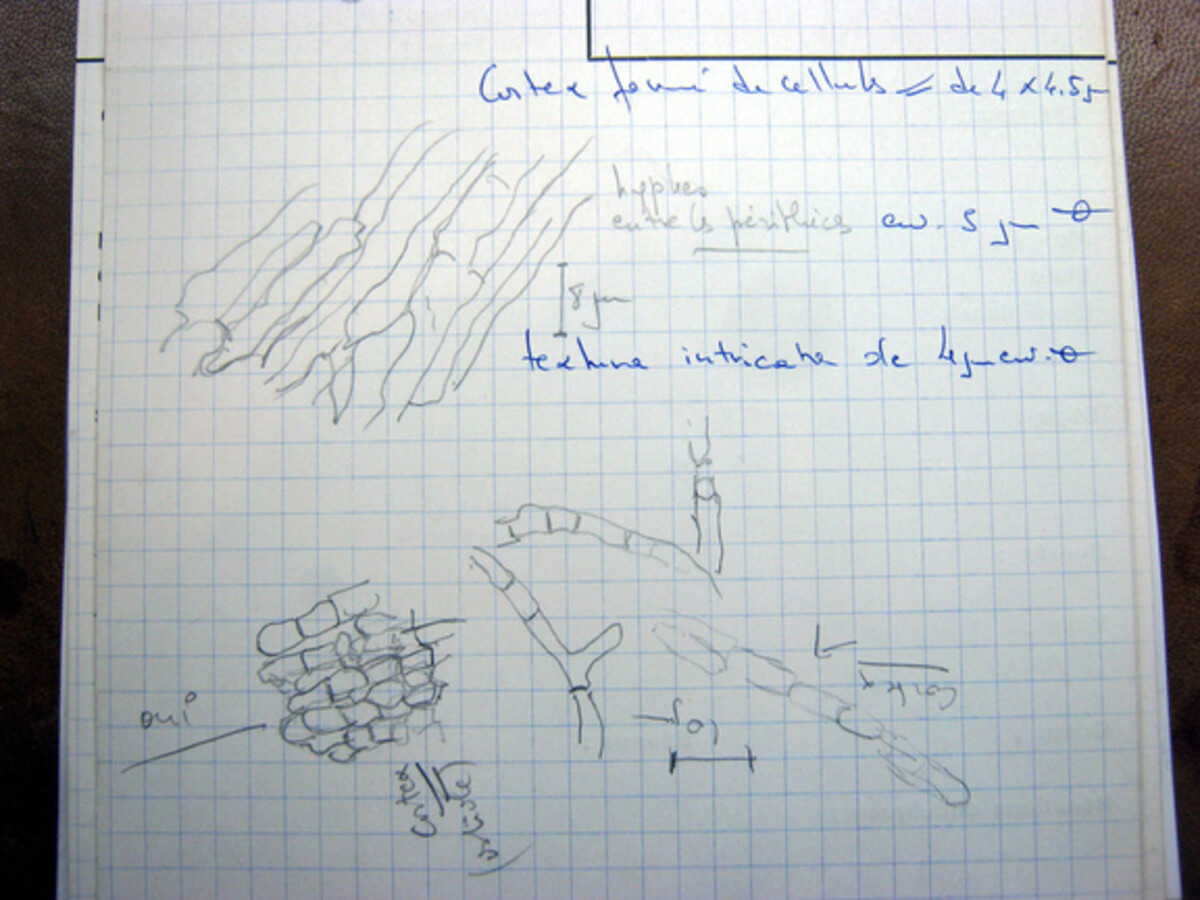 Cortex formé de cellules = de 4 x 4.5 µ
hyphes
entre les périthèces env. 5 µm
8 µm
textura intricata de 4 µm env.
oui
Cortex
10 µ
Cortex